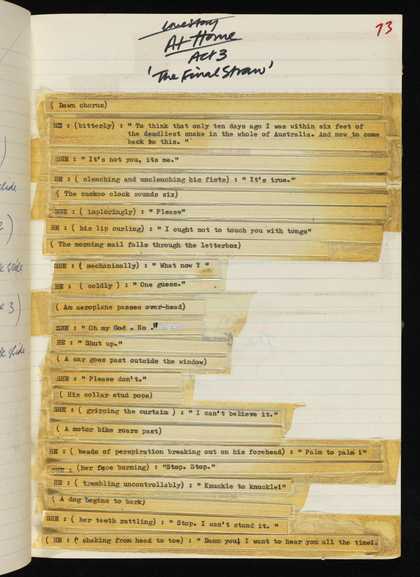 73
Love Story
At Home
Act 3
'The Final Straw'
( Dawn chorus)
HE : (bitterly) : " To think that only ten days ago I was within six feet of
the deadliest snake in the whole of Australia. And now to come
back to this. "
SHE : " It's not you, its me."
HE : ( clenching and unclenching his fists) : " It's true."
( The cuckoo clock sounds six)
SHE : ( imploringly) : " Please"
HE : ( his lip curling) : " I ought not to touch you with tongs"
( The morning mail falls through the letterbox)
SHE : ( mechanically) : " What now ? "
HE : ( coldly) : " One guess."
( An aeroplane passes over-head)
SHE : " Oh my God . No ."
HE : " Shut up."
( A car goes past outside the window)
SHE : " Please don't."
( His collar stud pops)
SHE : ( gripping the curtain ) : " I can't believe it."
( A motor bike roars past)
HE : ( beads of perspiration breaking out on his forehead) : " Palm to palm !"
SHE : (her face burning) : "Stop. Stop."
HE : ( trembling uncontrollably) : " Knuckle to knuckle!"
( A dog begins to bark)
SHE : ( her teeth rattling) : " Stop. I can't stand it. "
( HE : ( shaking from head to toe) : " Damn you! I want to hear you all the time!.